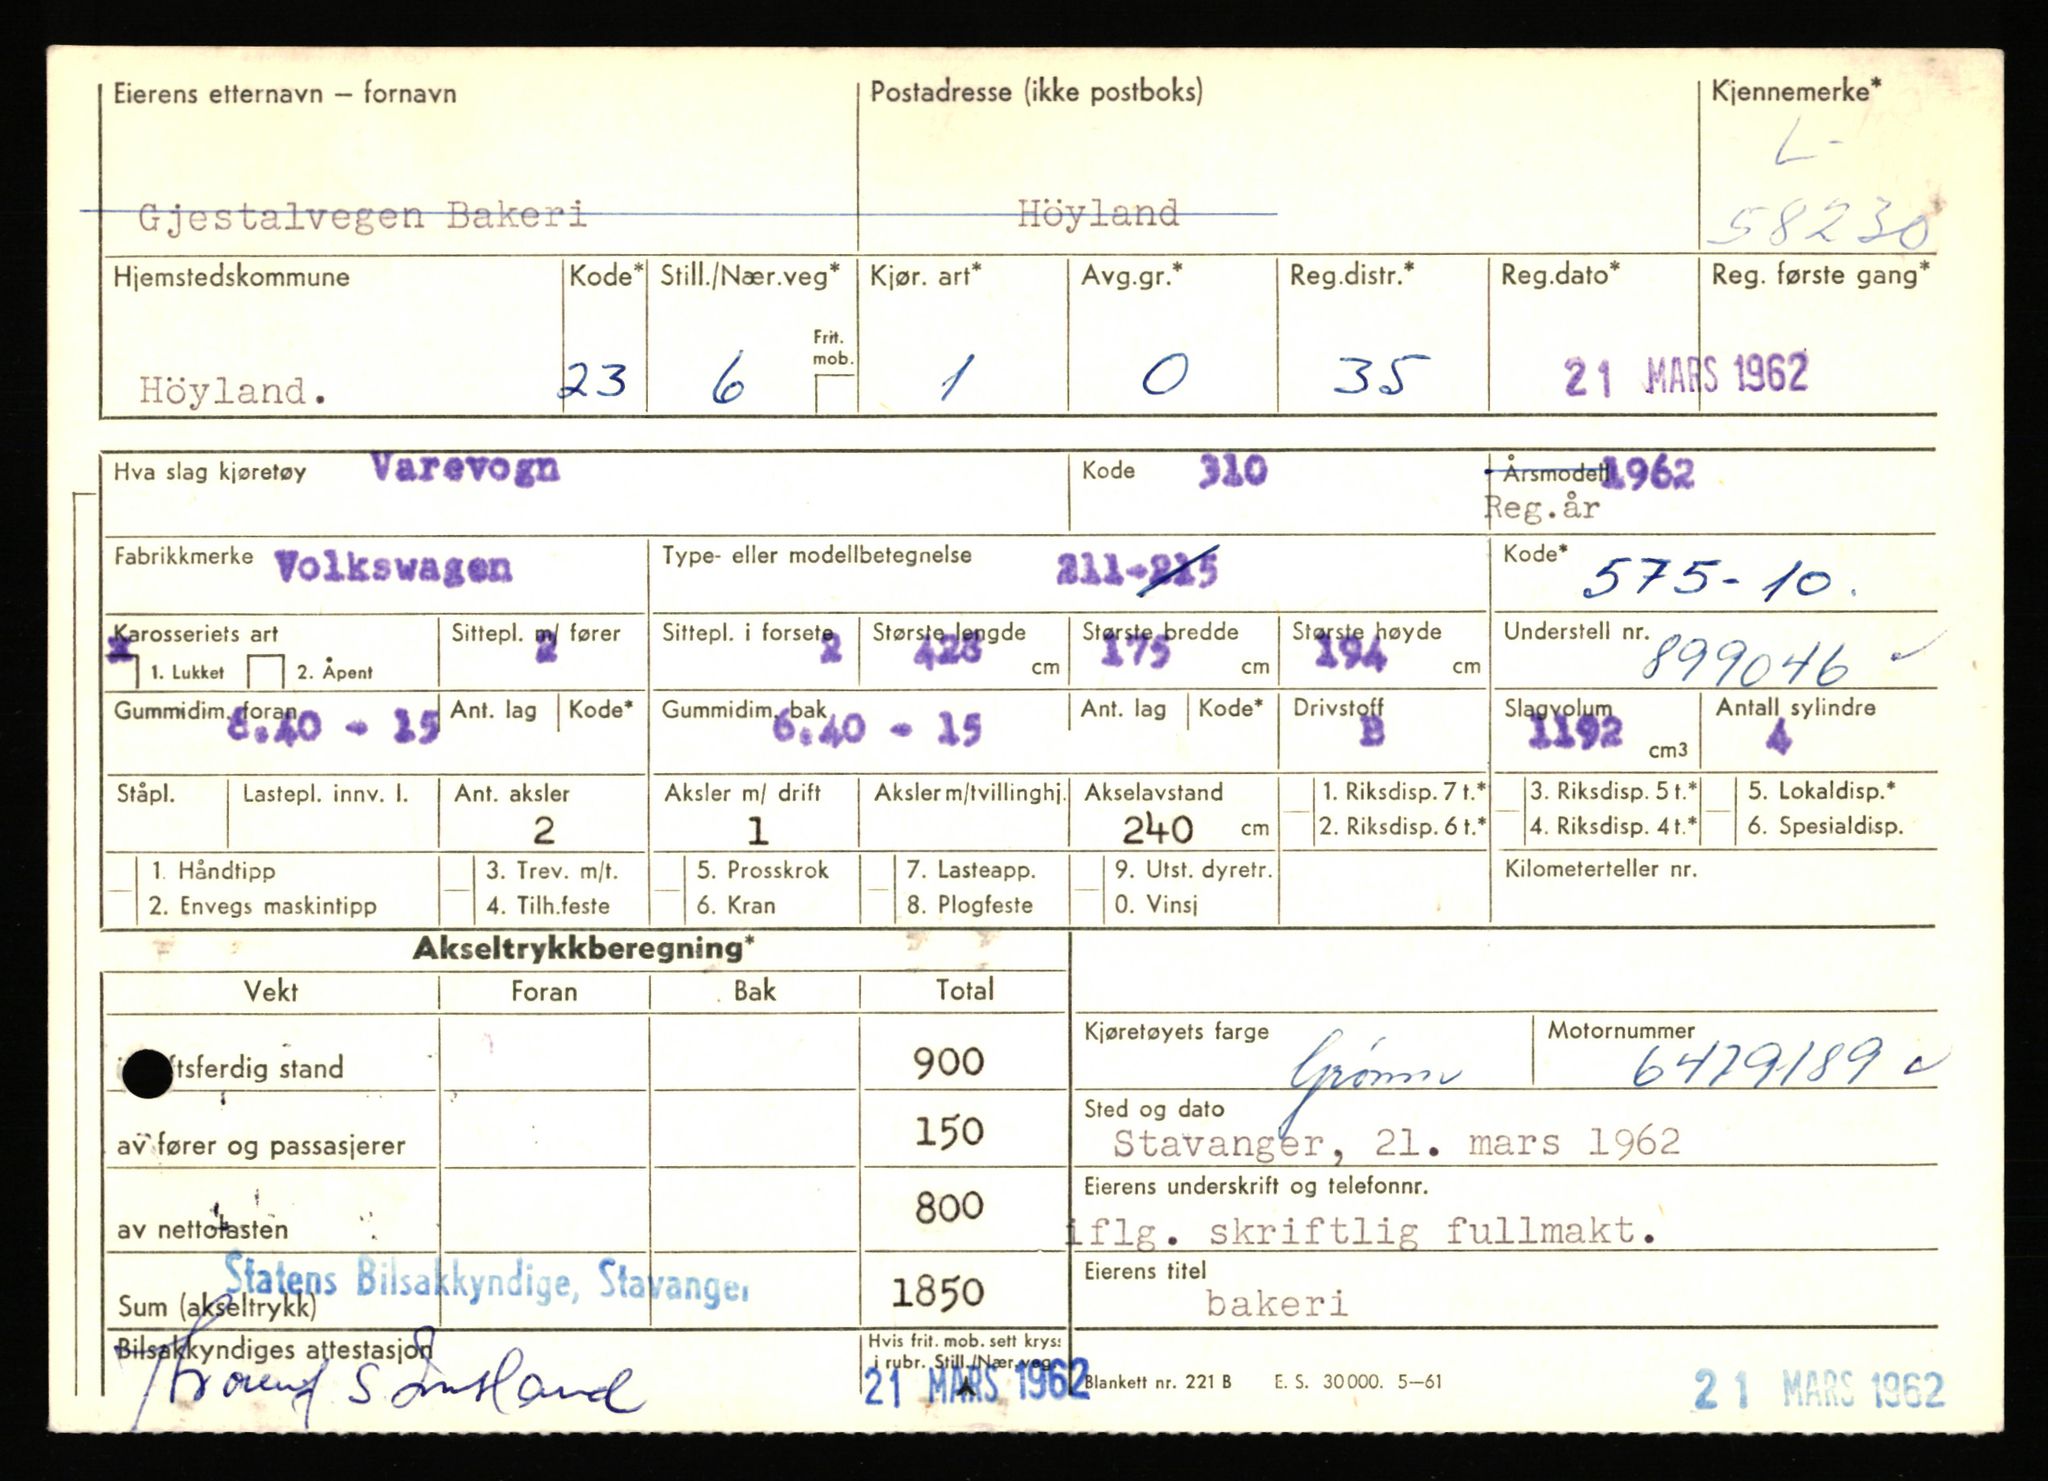 Eierens etternavn – fornavn Postadresse (ikke postboks) Kjennemerke*
L-
Gjestalvegen Bakeri Höyland 58230
Hjemstedskommune Kode* Still./Nær.veg* Kjør. art* Avg.gr.* Reg.distr.* Reg.dato* Reg. første gang*
Frit.
mob.
Höyland. 23 6 1 0 35 21 MARS 1962
Hva slag kjøretøy Varevogn Kode 310 Årsmodell 1962
Reg.år
Fabrikkmerke Volkswagen Type- eller modellbetegnelse 211-215 Kode* 575-10.
Karosseriets art Sittepl. m/ fører Sittepl. i forsete Største lengde Største bredde Største høyde Understell nr.
x 1. Lukket 2. Åpent 2 2 428 cm 175 cm 194 cm 899046
Gummidim. foran Ant. lag Kode* Gummidim. bak Ant. lag Kode* Drivstoff Slagvolum Antall sylindre
6.40 - 15 6.40 - 15 B 1192 cm3 4
Ståpl. Lastepl. innv. l. Ant. aksler Aksler m/ drift Aksler m/tvillinghj. Akselavstand 1. Riksdisp. 7 t.* 3. Riksdisp. 5 t.* 5. Lokaldisp.*
2 1 240 cm 2. Riksdisp. 6 t.* 4. Riksdisp. 4 t.* 6. Spesialdisp.
1. Håndtipp 3. Trev. m/t. 5. Prosskrok 7. Lasteapp. 9. Utst. dyretr. Kilometerteller nr.
2. Envegs maskintipp 4. Tilh.feste 6. Kran 8. Plogfeste 0. Vinsj
Akseltrykkberegning*
Vekt Foran Bak Total
Kjøretøyets farge Motornummer
tsferdig stand 900 Grönn 6479189
Sted og dato
av fører og passasjerer 150 Stavanger, 21. mars 1962
Eierens underskrift og telefonnr.
av nettolasten 800 iflg. skriftlig fullmakt.
Statens Bilsakkyndige, Stavanger
Eierens titel
Sum (akseltrykk) 1850 bakeri
Bilsakkyndiges attestasjon Hvis frit. mob. sett kryss
i rubr. Still./Nær.veg.
21 MARS 1962 Blankett nr. 221 B E. S. 30000. 5–61 21 MARS 1962